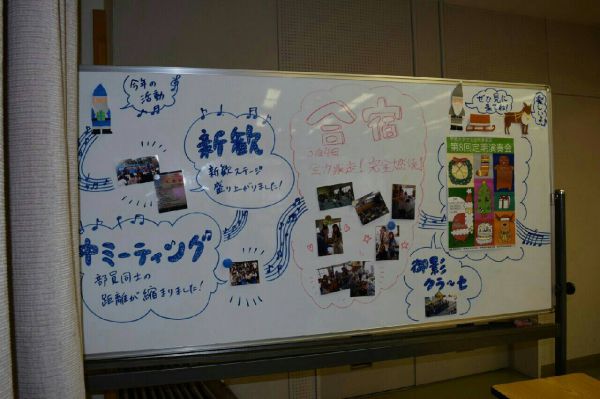 今年の
活動
新歓
新歓ステージ
盛り上がりました!
中ミーティング
部員同士の
距離が縮まりました!
合宿
3泊4日
全力疾走!完全燃焼!
ぜひ見に
来てね!
楽しい♪
第8回定期演奏会
御影
クラ〜セ